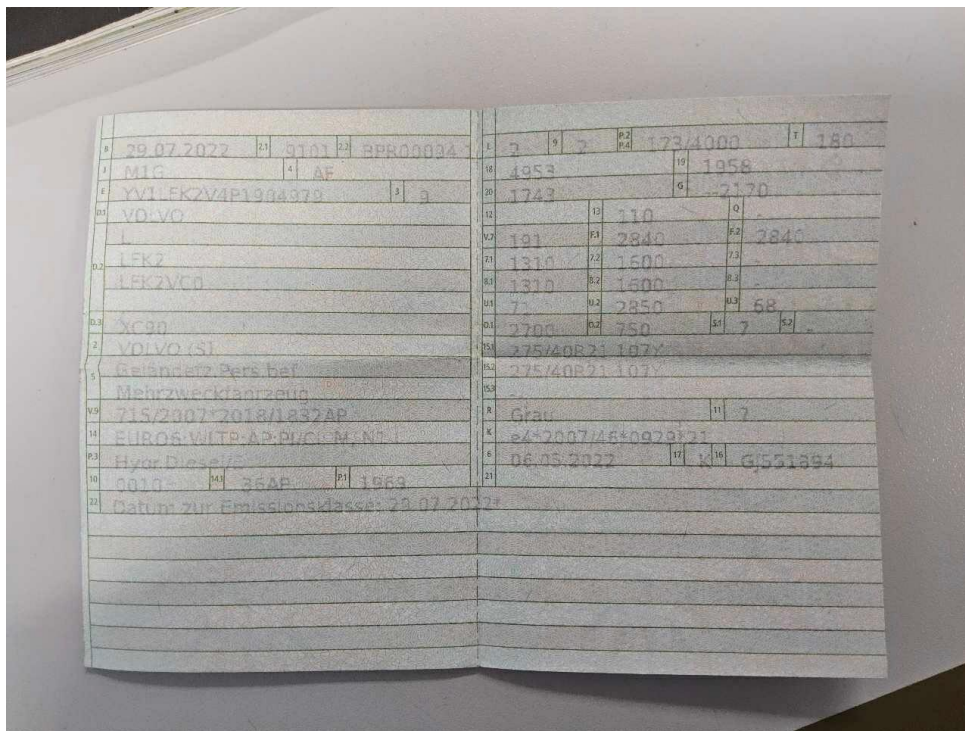 B 29.07.2022 2.1 9101 2.2
J M1G 4 AF
E 3 9
D.1 VOLVO
L
D.2 LFK2
LFK2VC0
D.3 XC90
2 VOLVO (S)
5 Geländefz.Pers.bef
Mehrzweckfahrzeug
V.9 715/2007*2018/1832AP
14 EURO6;WLTP;AP;PI/CI;M,N1 I
P.3 Hybr.Diesel/E
10 0010 14.1 36AP P.1 1969
22 Datum zur Emissionsklasse: 29.07.2022*
L 2 9 2 P.2 P.4 173/4000 T 180
18 4953 19 1958
20 1743 G 2170
12 - 13 110 Q -
V.7 191 F.1 2840 F.2 2840
7.1 1310 7.2 1600 7.3 -
8.1 1310 8.2 1600 8.3 -
U.1 71 U.2 2850 U.3 68
O.1 2700 O.2 750 S.1 7 S.2 -
15.1 275/40R21 107Y
15.2 275/40R21 107Y
15.3 -
R Grau 11 7
K e4*2007/46*0929*21
6 06.05.2022 17 K 16 GJ551894
21